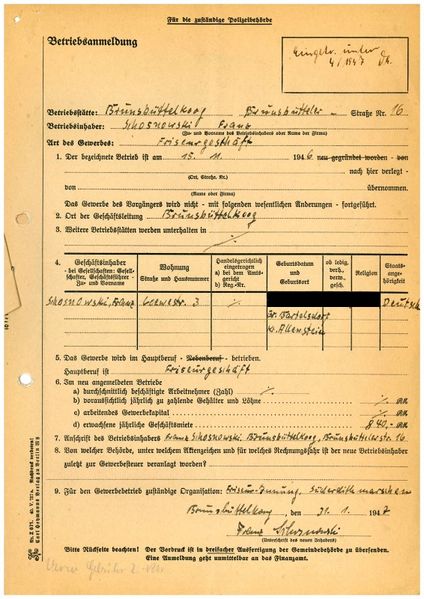 Für die zuständige Polizeibehörde
Betriebsanmeldung
Eingetr. unter
4/1947
Betriebsstätte: Brunsbüttelkoog Brunsbütteler - Straße Nr. 16
Betriebsinhaber: Skosnowski Franz
(Zu- und Vorname des Betriebsinhabers oder Name der Firma)
Art des Gewerbes: Friseurgeschäft
1. Der bezeichnete Betrieb ist am 15. 11. 1946 neu gegründet worden - von
nach hier verlegt -
(Ort, Straße, Nr.)
von übernommen.
(Name oder Firma)
Das Gewerbe des Vorgängers wird nicht - mit folgenden wesentlichen Änderungen - fortgeführt.
2. Ort der Geschäftsleitung Brunsbüttelkoog
3. Weitere Betriebsstätten werden unterhalten in
4. Geschäftsinhaber - bei Gesellschaften: Gesellschafter, Geschäftsführer - Zu- und Vorname
Wohnung Straße und Hausnummer
Handelsgerichtlich eingetragen a) bei dem Amtsgericht b) Reg.-Nr.
Geburtsdatum und Geburtsort
ob ledig, verh., verw., gesch.
Religion
Staatsangehörigkeit
Skosnowski, Franz 3 ./. Deutsch
Gr. Bartelsdorf
Allenstein
5. Das Gewerbe wird im Hauptberuf - Nebenberuf - betrieben.
Hauptberuf ist Friseurgeschäft
6. Im neu angemeldeten Betriebe
a) durchschnittlich beschäftigte Arbeitnehmer (Zahl) ./.
b) voraussichtlich jährlich zu zahlende Gehälter und Löhne ./. RM
c) arbeitendes Gewerbekapital ./. RM
d) erwachsene jährliche Geschäftsmiete 840.- RM
7. Anschrift des Betriebsinhabers Franz Skosnowski Brunsbüttelkoog, Brunsbüttelerstr. 16
8. Von welcher Behörde, unter welchem Aktenzeichen und für welches Rechnungsjahr ist der neue Betriebsinhaber
zuletzt zur Gewerbesteuer veranlagt worden?
9. Für den Gewerbebetrieb zuständige Organisation: Friseur-Innung, Süderdithmarschen
Brunsbüttelkoog, den 31. 1. 1947
Franz Skosnowski
(Unterschrift des neuen Inhabers)
Bitte Rückseite beachten! Der Vordruck ist in dreifacher Ausfertigung der Gemeindebehörde zu übersenden.
Eine Anmeldung geht unmittelbar an das Finanzamt.
Nachdruck verboten!
Carl Heymanns Verlag zu Berlin W 8